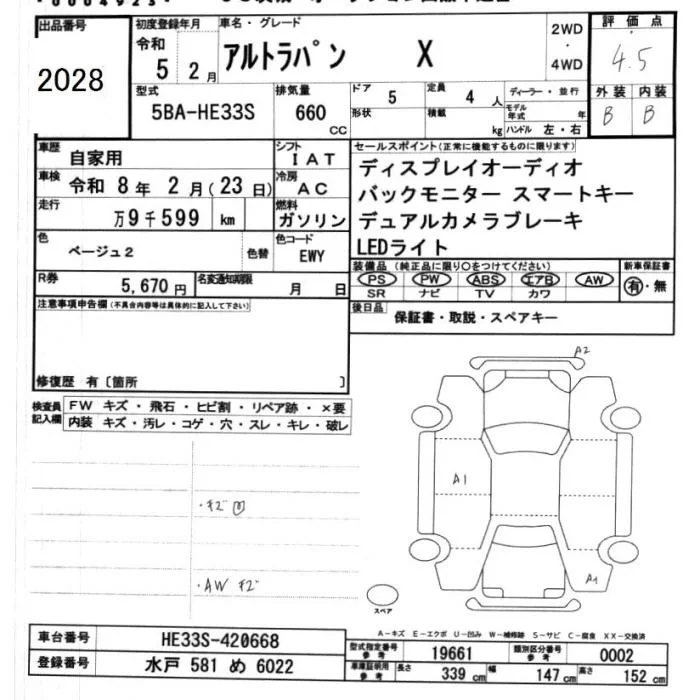 出品番号
2028
初度登録年月
令和
5 2月
車名・グレード
アルトラパン X
2WD
・
4WD
評価点
4.5
外装 内装
B B
型式
5BA-HE33S
排気量
660
CC
ドア
5
形状
定員
4 人
積載
kg
ディーラー・並行
モデル年式 年
ハンドル 左・右
車歴
自家用
シフト
IAT
車検
令和 8年 2月(23日)
冷房
AC
走行
万9千599 km
燃料
ガソリン
色
ベージュ2
色替
色コード
EWY
R券
5,670円
名変通知期限
月 日
セールスポイント(正常に機能するものに限ります)
ディスプレイオーディオ
バックモニター スマートキー
デュアルカメラブレーキ
LEDライト
装備品 (純正品に限り〇をつけてください)
PS PW ABS エアB AW
SR ナビ TV カワ
新車保証書
有・無
後日品
保証書・取説・スペアキー
注意事項申告欄(不具合内容等は具体的に記入して下さい)
修復歴 有〔箇所 〕
検査員記入欄
FW キズ・飛石・ヒビ割・リペア跡・×要
内装 キズ・汚レ・コゲ・穴・スレ・キレ・破レ
・AW キズ
A2
A1
A1
スペア
A-キズ E-エクボ U-凹み W-補修跡 S-サビ C-腐食 XX-交換済
車台番号
HE33S-420668
登録番号
水戸 581 め 6022
型式指定番号
参考
19661
類別区分番号
参考
0002
車庫証明用
参考
長さ
339 cm
幅
147 cm
高さ
152 cm